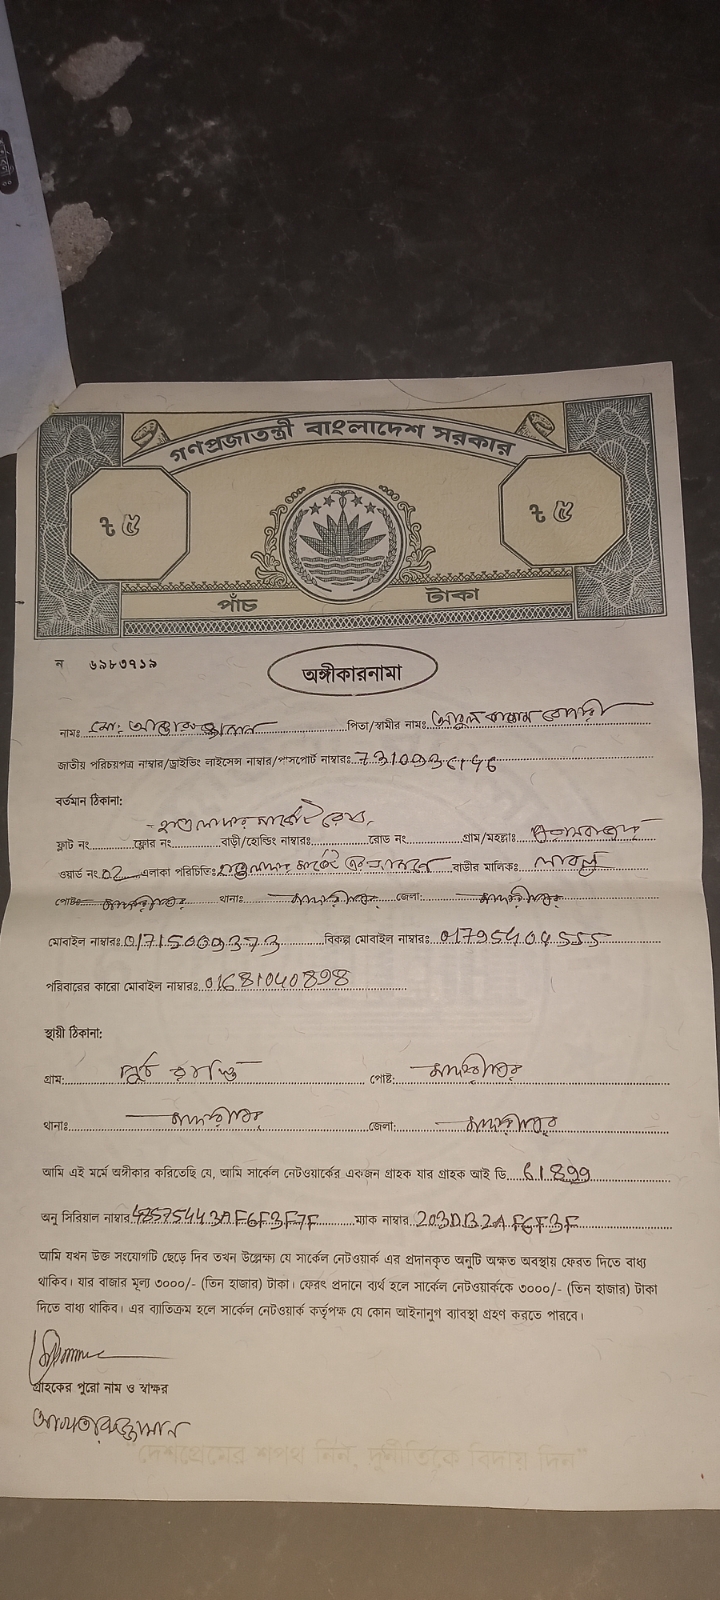 গণপ্রজাতন্ত্রী বাংলাদেশ সরকার
৳ ৫ ৳ ৫
পাঁচ টাকা
ন ৬৯৮৩৭১৯
অঙ্গীকারনামা
নামঃ মোঃ পিতা/স্বামীর নামঃ
জাতীয় পরিচয়পত্র নাম্বার/ড্রাইভিং লাইসেন্স নাম্বার/পাসপোর্ট নাম্বারঃ
বর্তমান ঠিকানা:
ফ্লাট নং ফ্লোর নং বাড়ী/হোল্ডিং নাম্বারঃ রোড নং গ্রাম/মহল্লাঃ
ওয়ার্ড নং 02 এলাকা পরিচিতিঃ বাড়ীর মালিকঃ
পোষ্টঃ মাদারীপুর থানাঃ মাদারীপুর জেলা: মাদারীপুর
মোবাইল নাম্বারঃ 01715009373 বিকল্প মোবাইল নাম্বারঃ 01795404555
পরিবারের কারো মোবাইল নাম্বারঃ 01681040898
স্থায়ী ঠিকানা:
গ্রাম: পোষ্ট: মাদারীপুর
থানাঃ মাদারীপুর জেলা: মাদারীপুর
আমি এই মর্মে অঙ্গীকার করিতেছি যে, আমি সার্কেল নেটওয়ার্কের একজন গ্রাহক যার গ্রাহক আই ডি 61899
অনু সিরিয়াল নাম্বার 48575443AF6F3F7F ম্যাক নাম্বার 203DB2AF6F3F
আমি যখন উক্ত সংযোগটি ছেড়ে দিব তখন উল্লেক্ষ্য যে সার্কেল নেটওয়ার্ক এর প্রদানকৃত অনুটি অক্ষত অবস্থায় ফেরত দিতে বাধ্য
থাকিব। যার বাজার মূল্য ৩০০০/- (তিন হাজার) টাকা। ফেরৎ প্রদানে ব্যর্থ হলে সার্কেল নেটওয়ার্ককে ৩০০০/- (তিন হাজার) টাকা
দিতে বাধ্য থাকিব। এর ব্যতিক্রম হলে সার্কেল নেটওয়ার্ক কর্তৃপক্ষ যে কোন আইনানুগ ব্যাবস্থা গ্রহণ করতে পারবে।
গ্রাহকের পুরো নাম ও স্বাক্ষর
আখতারুজ্জামান
"দেশপ্রেমের শপথ নিন, দুর্নীতিকে বিদায় দিন"